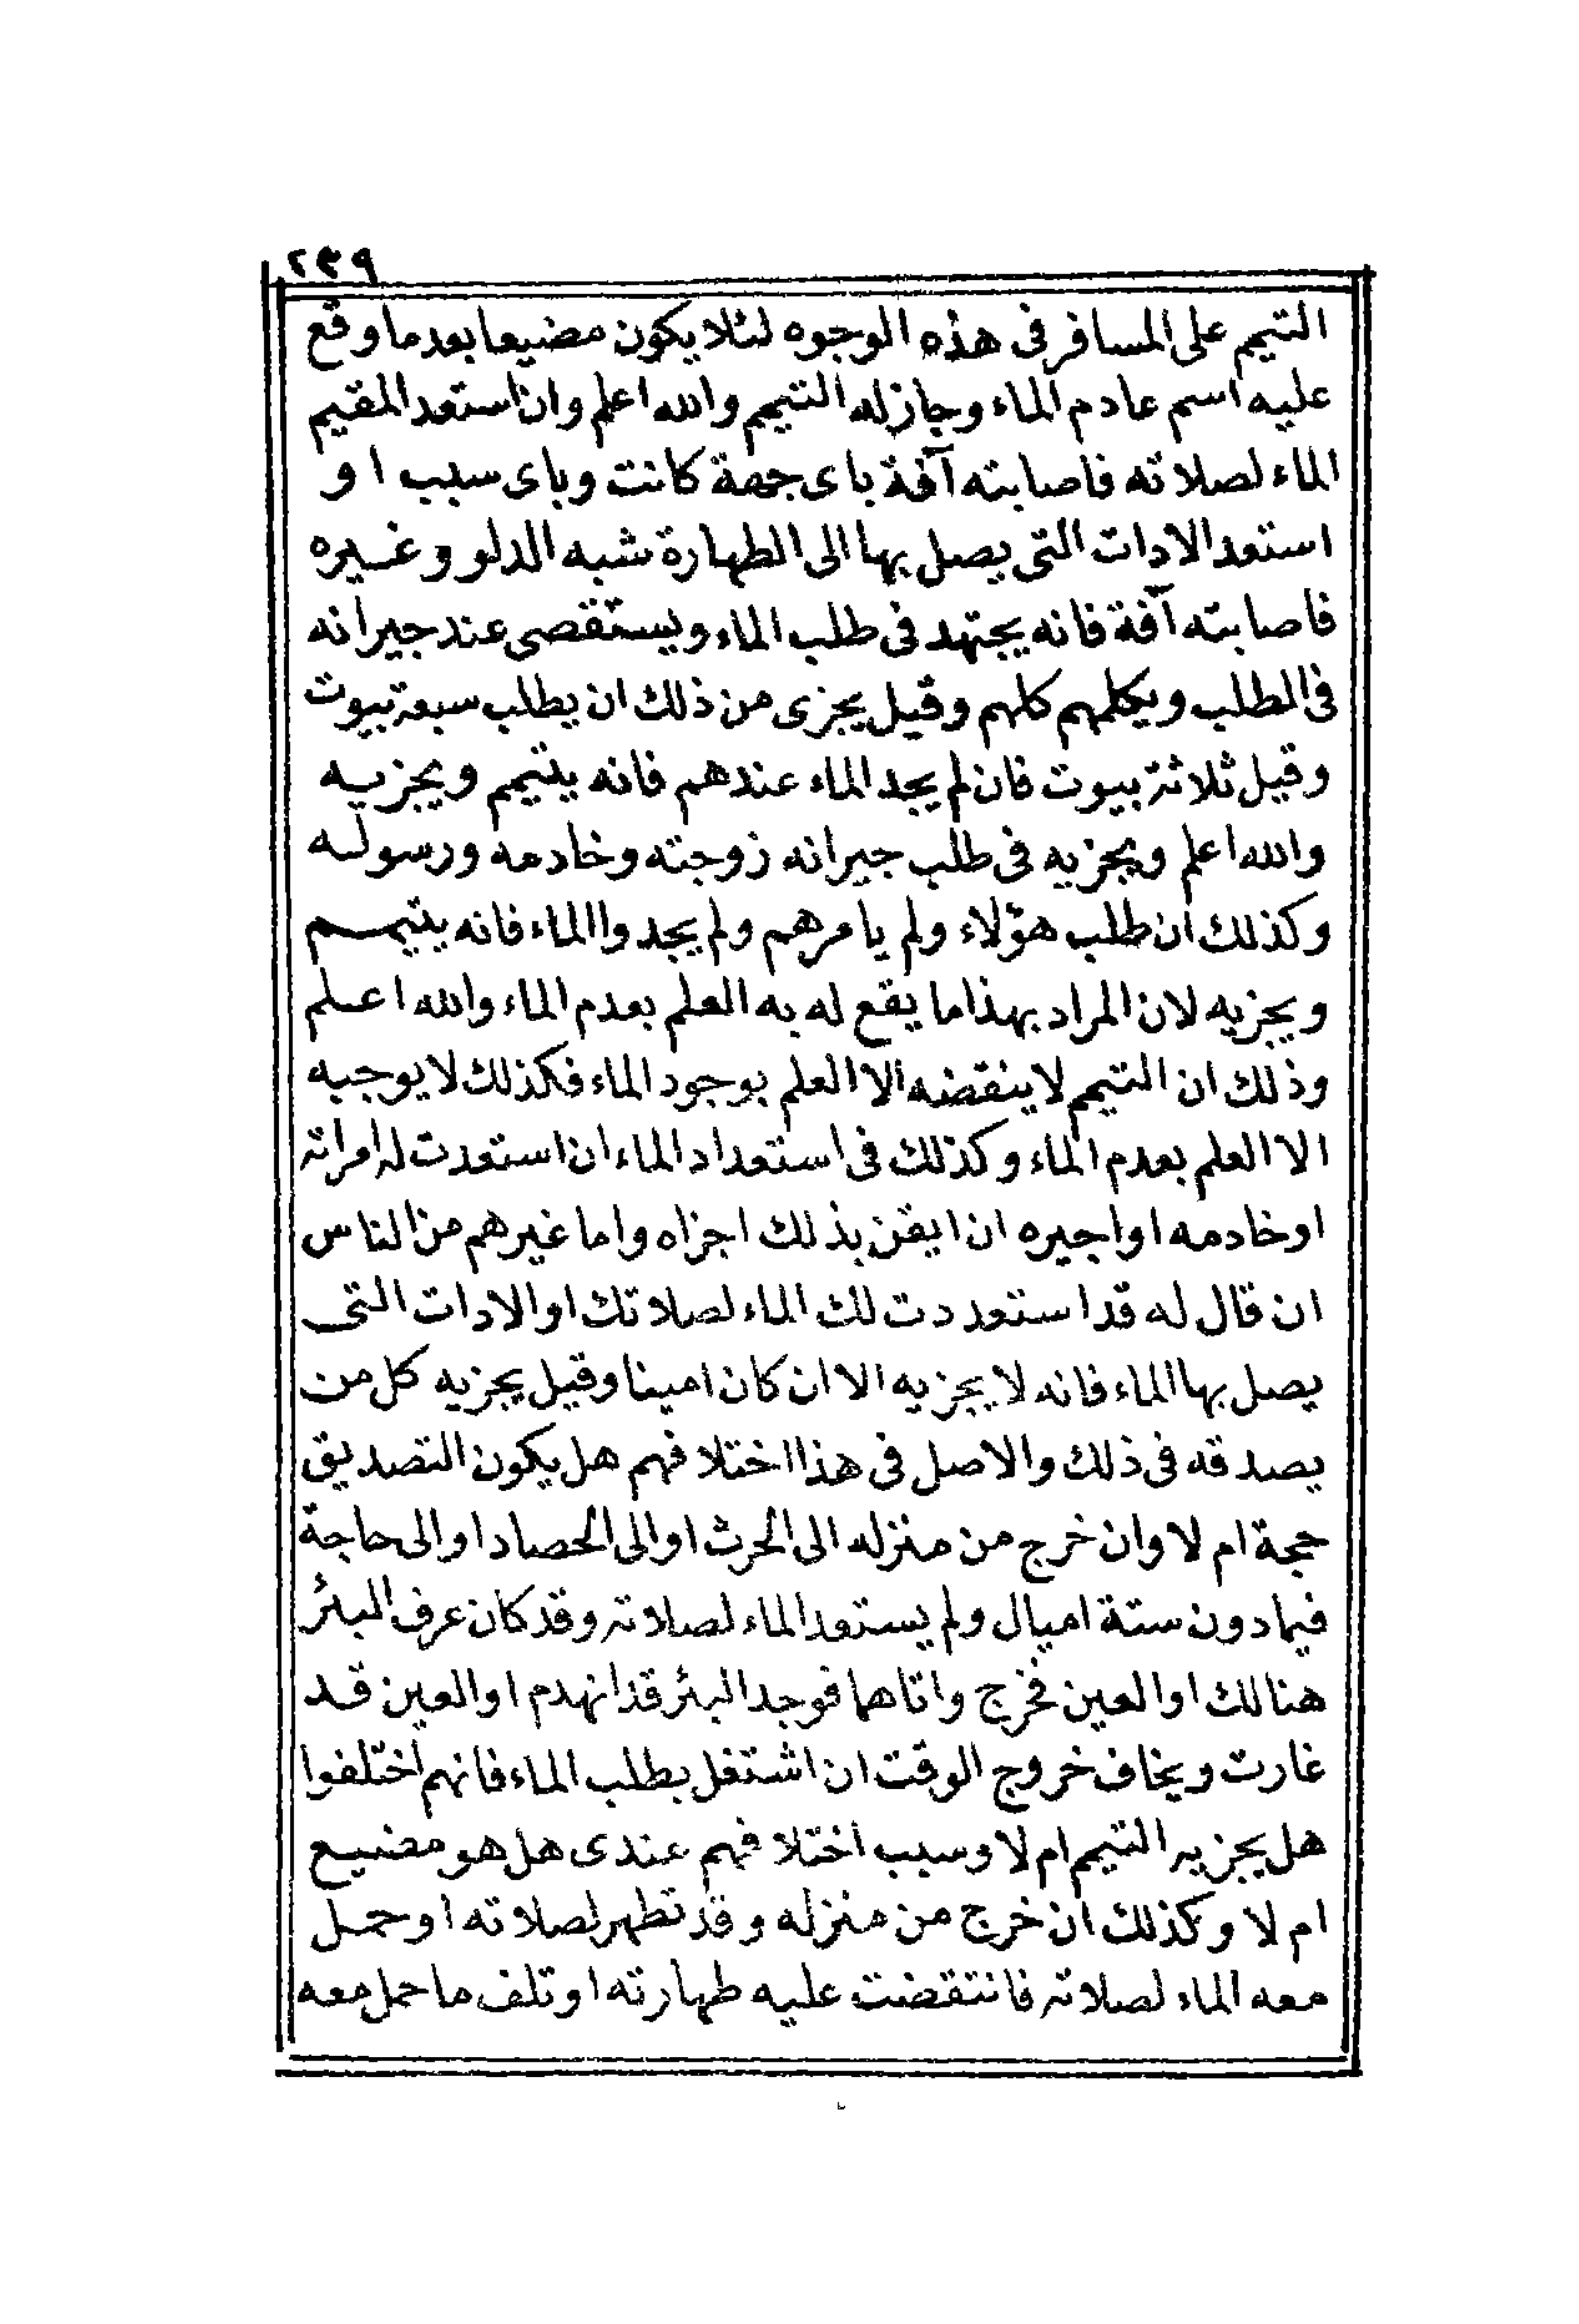 ٢٣٩
التيمم على المسافر فى هذه الوجوه لئلا يكون مضيعا بعد ما وقع
عليه اسم عادم الماء وجاز له التيمم والله اعلم وان استعد المقيم
الماء لصلاته فاصابته آفة باى جهة كانت وباى سبب او
استعد الادات التى يصل بها الى الطهارة شبه الدلو وغيره
فاصابته آفة فانه يجتهد فى طلب الماء ويستقصى عند جيرانه
فى الطلب ويكلمهم كلهم وقيل يجزى من ذلك ان يطلب سبعة بيوت
وقيل ثلاثة بيوت فان لم يجد الماء عندهم فانه يتيمم ويجزيه
والله اعلم ويجزيه فى طلب جيرانه زوجته وخادمه ورسوله
وكذلك ان طلب هؤلاء ولم يامرهم ولم يجدوا الماء فانه يتيمم
ويجزيه لان المراد بهذا ما يقع له به العلم بعدم الماء والله اعلم
وذلك ان التيمم لا ينقضه الا العلم بوجود الماء فكذلك لا يوجبه
الا العلم بعدم الماء وكذلك فى استعداد الماء ان استعدت له امراته
او خادمه او اجيره ان ايقن بذلك اجزاه واما غيرهم من الناس
ان قال له قد استعددت لك الماء لصلاتك او الادات التى
يصل بها الماء فانه لا يجزيه الا ان كان امينا وقيل يجزيه كل من
يصدقه فى ذلك والاصل فى هذا اختلافهم هل يكون التصديق
حجة ام لا وان خرج من منزله الى الحرث او الى الحصاد او الى حاجة
فيما دون ستة اميال ولم يستعد الماء لصلاته وقد كان عرف البئر
هنالك او العين فخرج واتاهما فوجد البئر قد انهدم او العين قد
غارت ويخاف خروج الوقت ان اشتغل بطلب الماء فانهم اختلفوا
هل يجزيه التيمم ام لا وسبب اختلافهم عندى هل هو مضيع
ام لا وكذلك ان خرج من منزله وقد تطهر لصلاته او حمل
معه الماء لصلاته فانتقضت عليه طهارته او تلف ما حمل معه